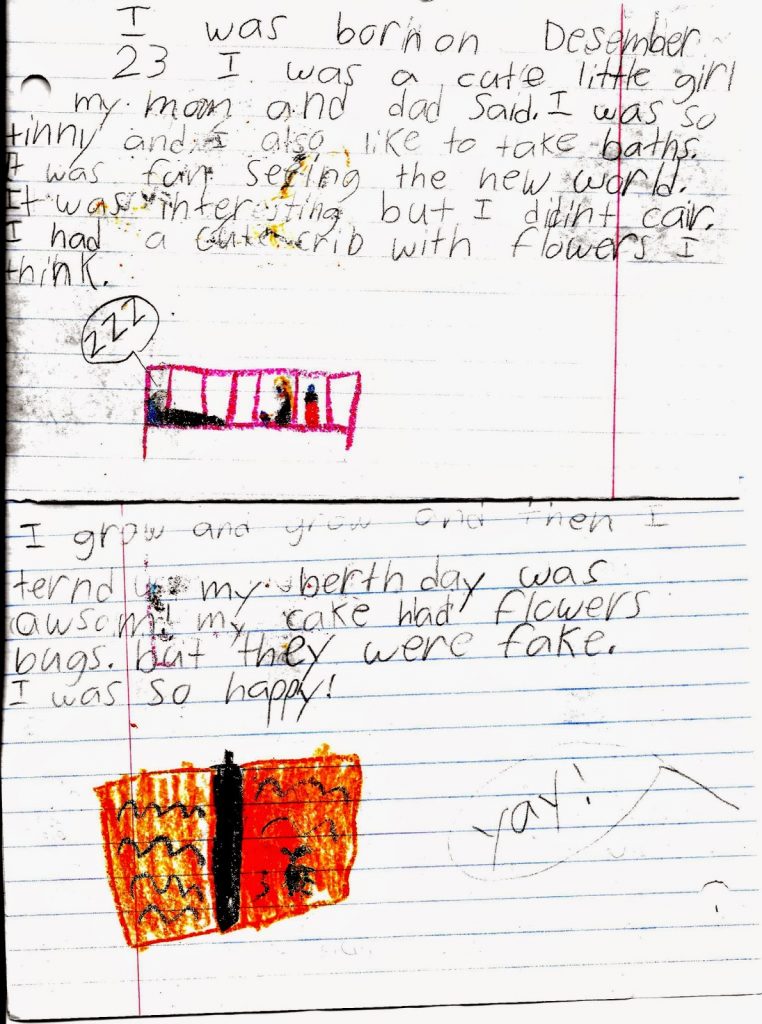 I was born on Desember
23 I was a cute little girl
my mom and dad said. I was so
tinny and I also like to take baths.
It was fun seeing the new world.
It was interesting but I didint cair.
I had a cute crib with flowers I
think.
ZZZ
I grow and grow and then I
ternd my berthday was
awsom! my cake had flowers
bugs. but they were fake.
I was so happy!
yay!